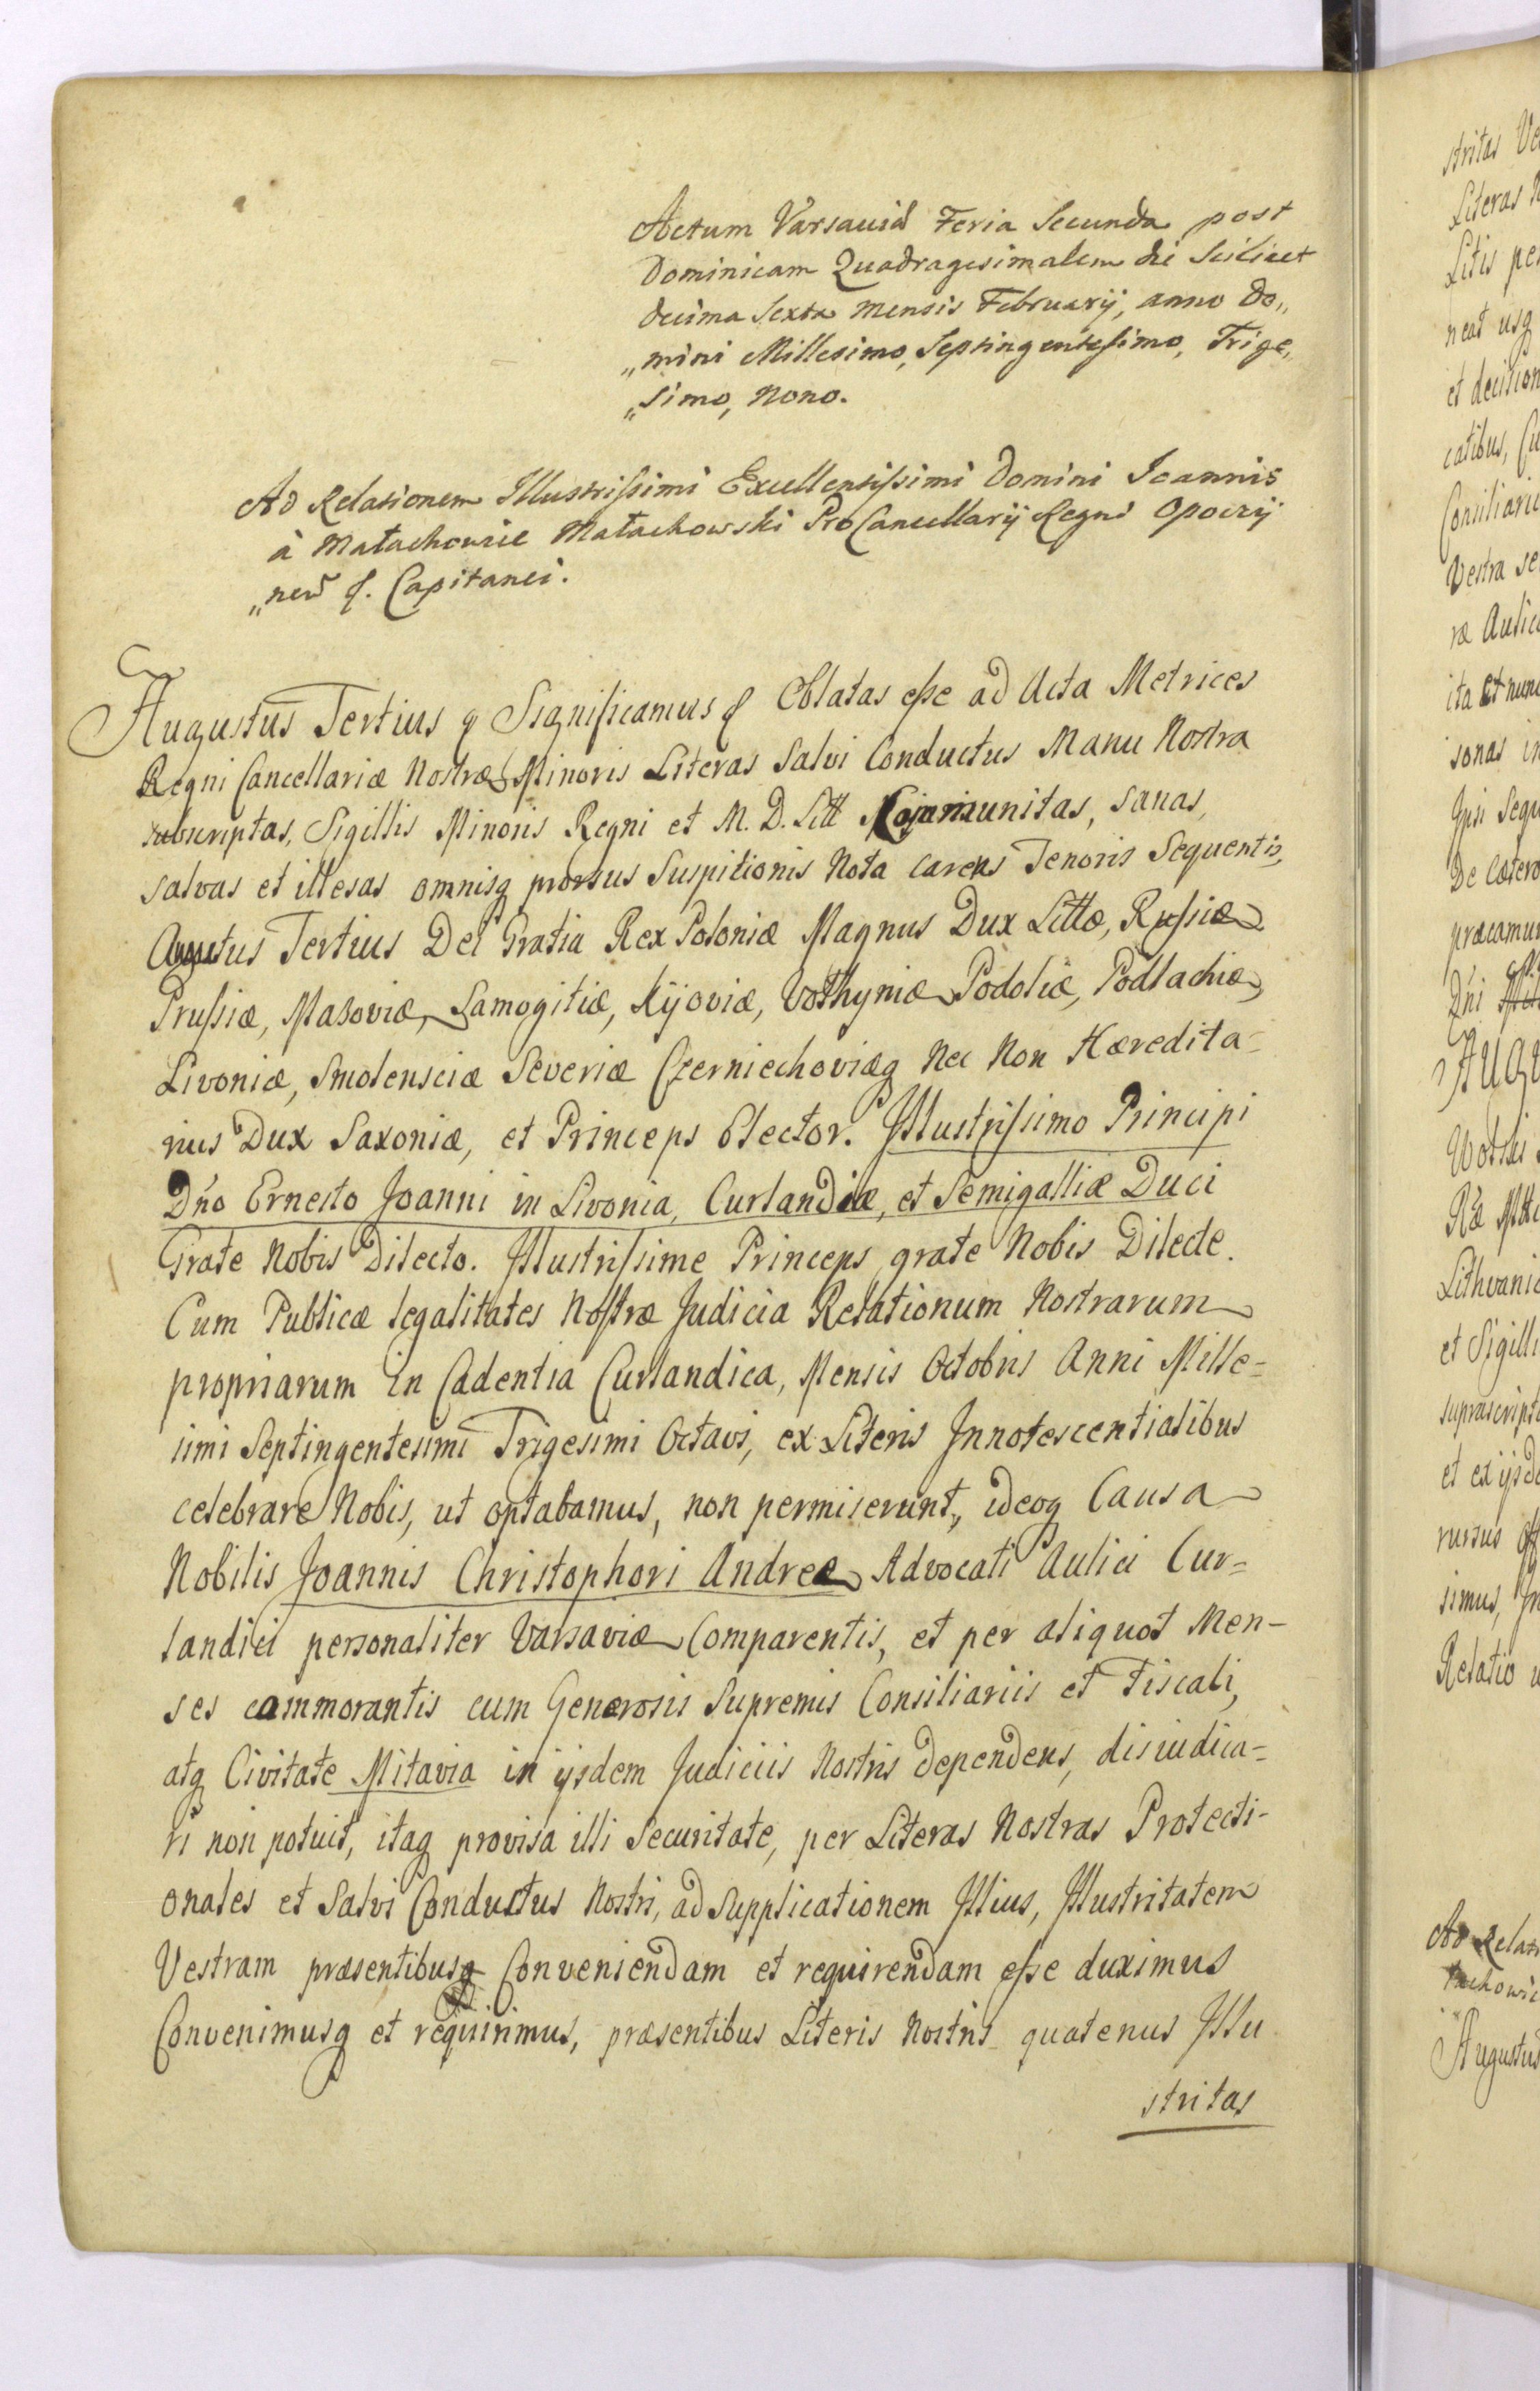 Actum Varsaviæ Feria Secunda post
Dominicam Quadragesimalem die Scilicet
decima Sexta Mensis Februarij, anno Do„
„mini Millesimo, Septingentesimo, Trige„
„simo, Nono.
Ad Relationem Illustrissimi Excellentissimi Domini Joannis
à Małachowice Małachowski ProCancellarij Regni Opoczy
„nen̄ q. Capitanei.
Augustus Tertius q Significamus q Oblatas esse ad Acta Metrices
Regni Cancellariæ Nostræ Minoris Literas Salvi Conductus Manu Nostra
subscriptas, Sigillis Minoris Regni et M. D. Litt Communitas, sanas,
salvas et illesas omnisq prorsus Suspitionis Nota carens Tenoris Sequentis,
Augustus Tertius Dei Gratia Rex Poloniæ Magnus Dux Littæ, Russiæ
Prussiæ, Masoviæ, Samogitiæ, Kijoviæ, Volhyniæ Podoliæ, Podlachiæ,
Livoniæ, Smolensciæ Severiæ Czerniechoviæq Nec Non Hæredita=
rius Dux Saxoniæ, et Princeps Elector. Illustrissimo Principi
Dn̄o Ernesto Joanni in Livonia, Curlandiæ, et Semigalliæ Duci
Grate Nobis Dilecto. Illustrissime Princeps grate Nobis Dilecte.
Cum Publicæ legalitates Nostræ Judicia Relationum Nostrarum
propriarum in Cadentia Curlandica, Mensis Octobris Anni Mille=
simi Septingentesimi Trigesimi Octavi, ex Literis Innotescentialibus
celebrare Nobis, ut optabamus, non permiserunt, ideoq Causa
Nobilis Joannis Christophori Andreæ Advocati Aulici Cur=
landici personaliter Varsaviæ Comparentis, et per aliquot Men-
ses commorantis cum Generosis Supremis Consiliariis et Fiscali,
atq Civitate Mitavia in ijsdem Judiciis Nostris dependens, disiudica=
ri non potuit, itaq provisa illi Securitate, per Literas Nostras Protecti-
onales et Salvi Conductus Nostri, ad Supplicationem Illius, Illustritatem
Vestram præsentibusq Conveniendam et requirendam esse duximus
Convenimusq et requirimus, præsentibus Literis Nostris quatenus Illu
stritas